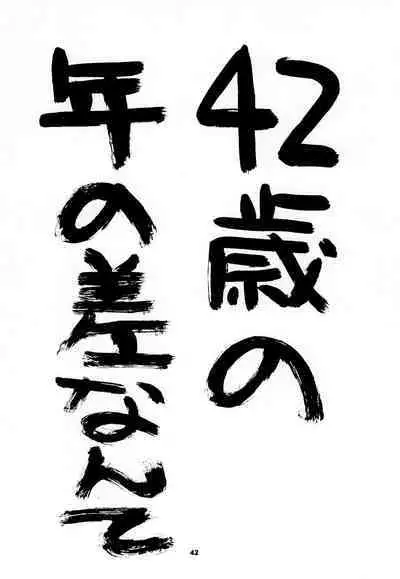 42歳の
年の差なんて
42